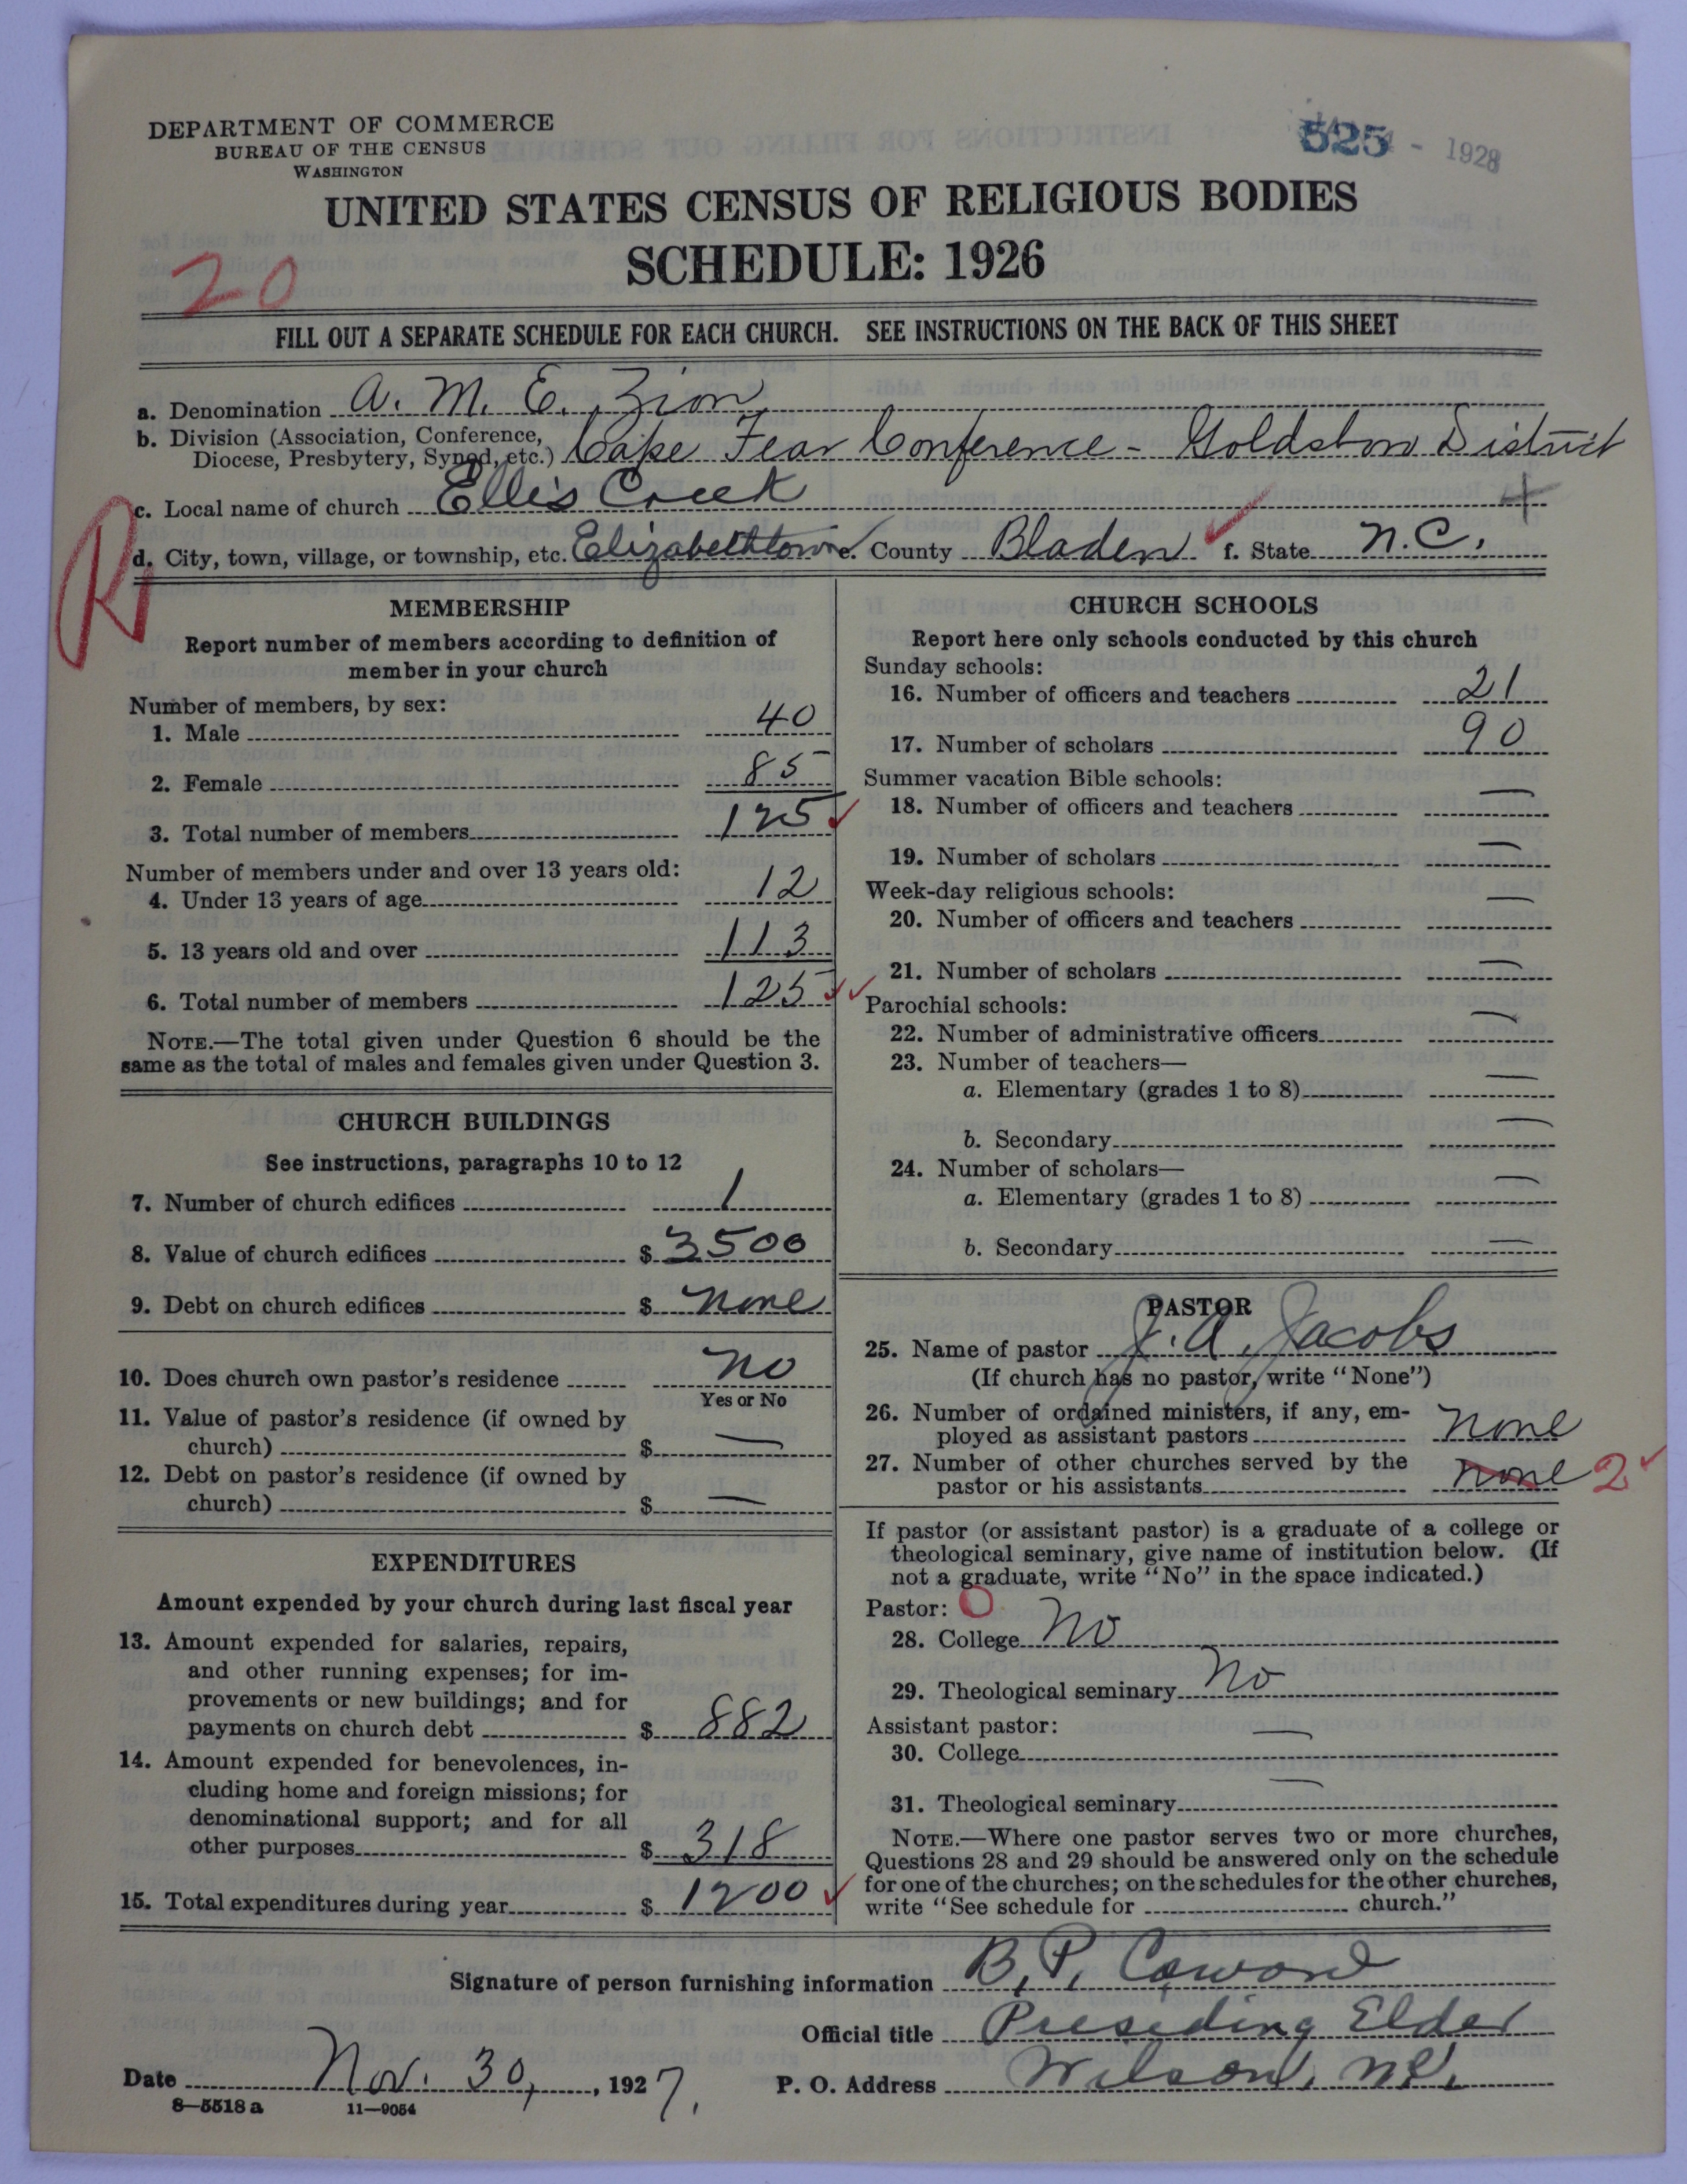 DEPARTMENT OF COMMERCE
BUREAU OF THE CENSUS
WASHINGTON
525 - 1928
UNITED STATES CENSUS OF RELIGIOUS BODIES
SCHEDULE: 1926
20
FILL OUT A SEPARATE SCHEDULE FOR EACH CHURCH. SEE INSTRUCTIONS ON THE BACK OF THIS SHEET
a. Denomination A. M. E. Zion
b. Division (Association, Conference, Diocese, Presbytery, Synod, etc.) Cape Fear Conference - Goldsboro District
c. Local name of church Ellis Creek
R
d. City, town, village, or township, etc. Elizabethtown e. County Bladen f. State N.C.
MEMBERSHIP
Report number of members according to definition of
member in your church
Number of members, by sex:
1. Male 40
2. Female 85
3. Total number of members 125
Number of members under and over 13 years old:
4. Under 13 years of age 12
5. 13 years old and over 113
6. Total number of members 125
NOTE.—The total given under Question 6 should be the
same as the total of males and females given under Question 3.
CHURCH BUILDINGS
See instructions, paragraphs 10 to 12
7. Number of church edifices 1
8. Value of church edifices $ 3500
9. Debt on church edifices $ none
10. Does church own pastor's residence no
Yes or No
11. Value of pastor's residence (if owned by
church) $ —
12. Debt on pastor's residence (if owned by
church) $ —
EXPENDITURES
Amount expended by your church during last fiscal year
13. Amount expended for salaries, repairs,
and other running expenses; for im-
provements or new buildings; and for
payments on church debt $ 882
14. Amount expended for benevolences, in-
cluding home and foreign missions; for
denominational support; and for all
other purposes $ 318
15. Total expenditures during year $ 1200
CHURCH SCHOOLS
Report here only schools conducted by this church
Sunday schools:
16. Number of officers and teachers 21
17. Number of scholars 90
Summer vacation Bible schools:
18. Number of officers and teachers —
19. Number of scholars —
Week-day religious schools:
20. Number of officers and teachers —
21. Number of scholars —
Parochial schools:
22. Number of administrative officers —
23. Number of teachers—
a. Elementary (grades 1 to 8) —
b. Secondary —
24. Number of scholars—
a. Elementary (grades 1 to 8) —
b. Secondary —
PASTOR
25. Name of pastor J. A. Jacobs
(If church has no pastor, write "None")
26. Number of ordained ministers, if any, em-
ployed as assistant pastors none
27. Number of other churches served by the
pastor or his assistants none 2
If pastor (or assistant pastor) is a graduate of a college or
theological seminary, give name of institution below. (If
not a graduate, write "No" in the space indicated.)
Pastor: O
28. College No
29. Theological seminary No
Assistant pastor:
30. College —
31. Theological seminary —
NOTE.—Where one pastor serves two or more churches,
Questions 28 and 29 should be answered only on the schedule
for one of the churches; on the schedules for the other churches,
write "See schedule for church."
Signature of person furnishing information B. P. Coward
Official title Presiding Elder
Date Nov. 30, 1927. P. O. Address Wilson, N.C.
8—5518 a 11—9054